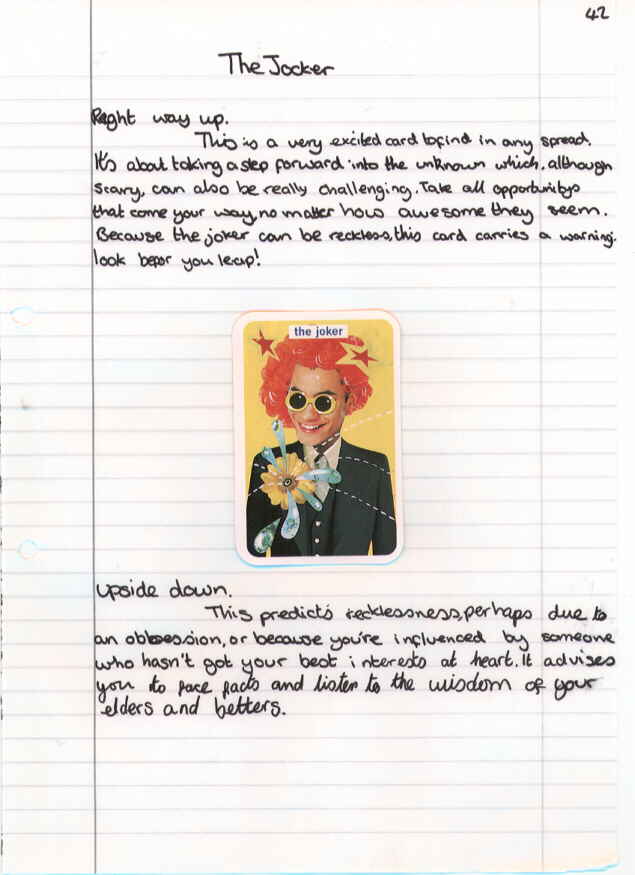 42
The Jocker
Right way up.
This is a very excited card to find in any spread.
It's about taking a step forward into the unknown which, although
scary, can also be really challenging. Take all opportunitys
that come your way, no matter how awesome they seem.
Because the joker can be reckless, this card carries a warning:
look befor you leap!
the joker
upside down.
This predicts recklessness, perhaps due to
an obbsession, or because you're influenced by someone
who hasn't got your best interests at heart. It advises
you to face facts and listen to the wisdom of your
elders and betters.